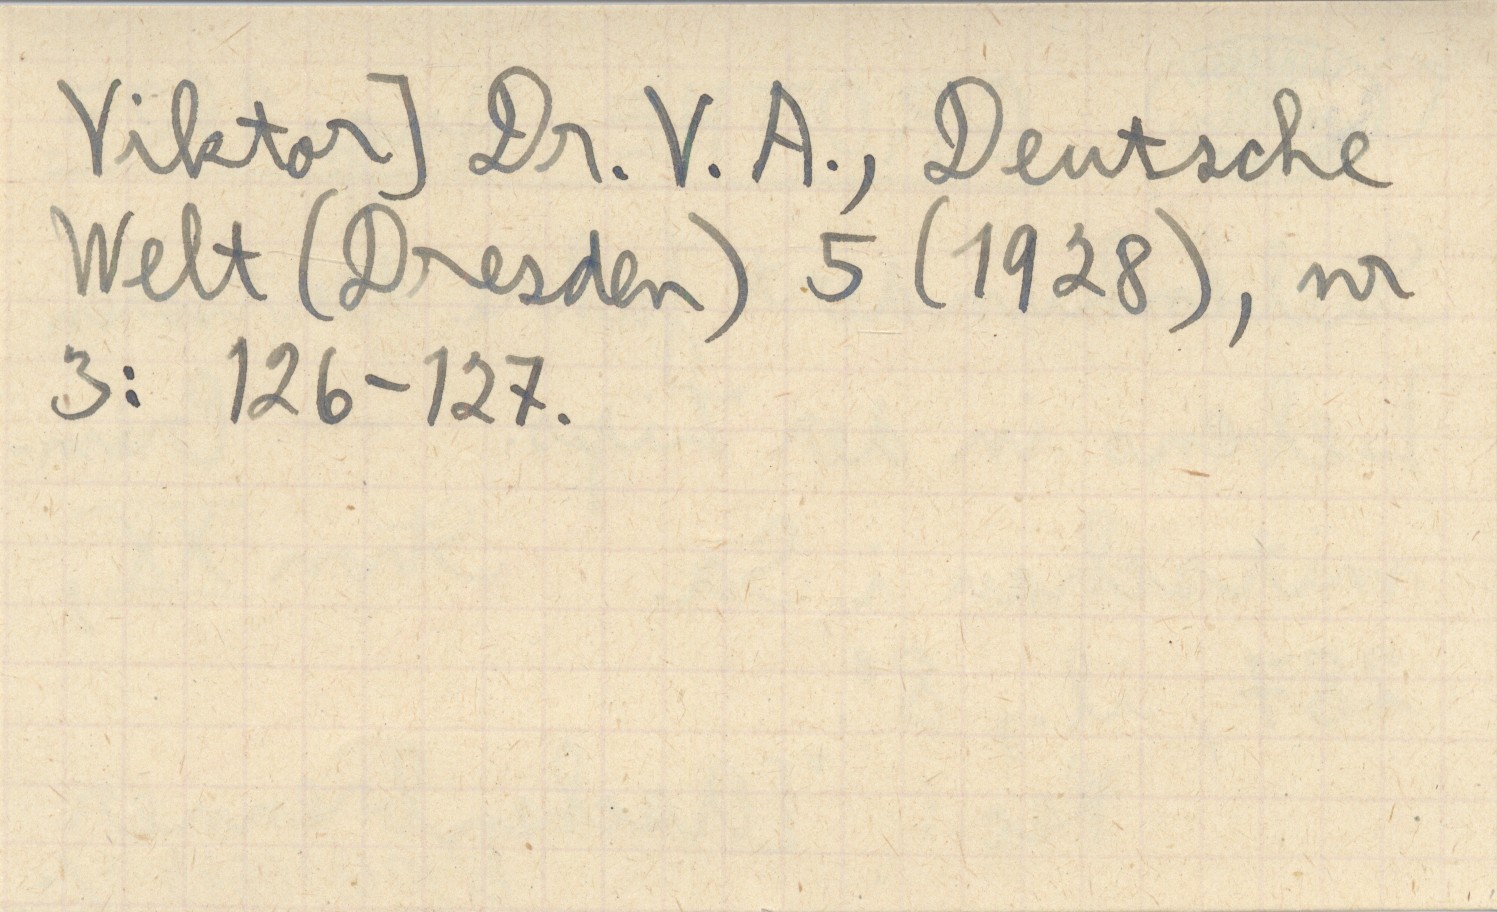 Viktor] Dr. V. A., Deutsche
Welt (Dresden) 5 (1928), nr
3: 126-127.